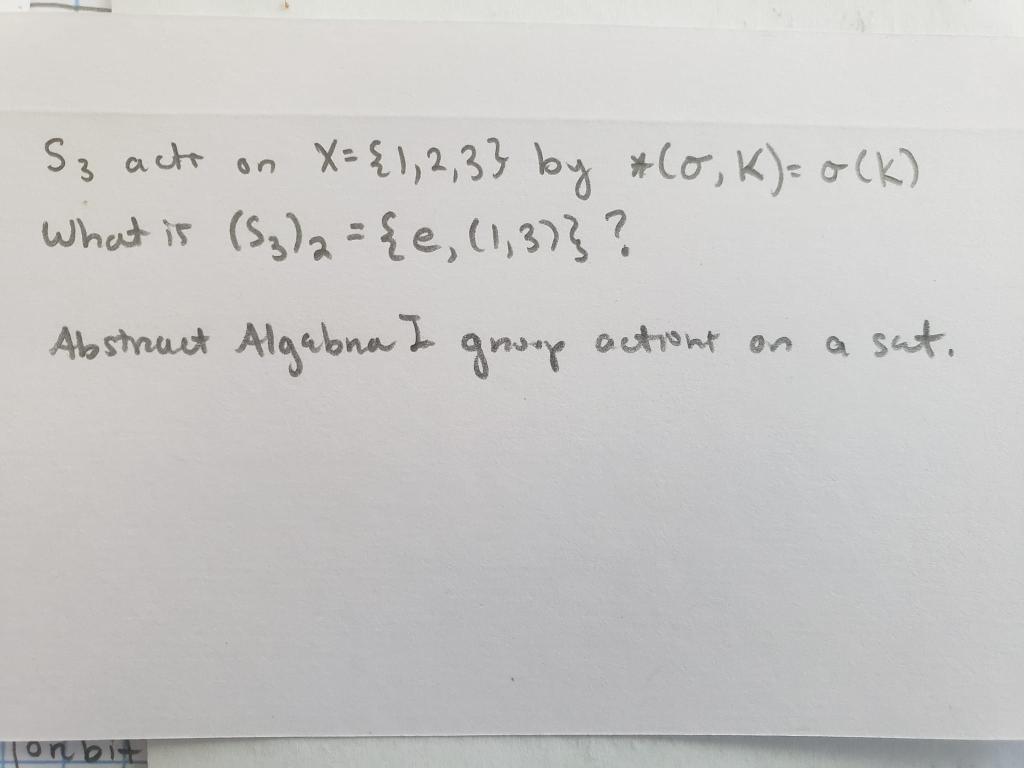 S₃ acts on X={1,2,3} by *(σ,K)=σ(K)
What is (S₃)₂={e,(1,3)}?
Abstract Algebra I group actions on a set.
onbit